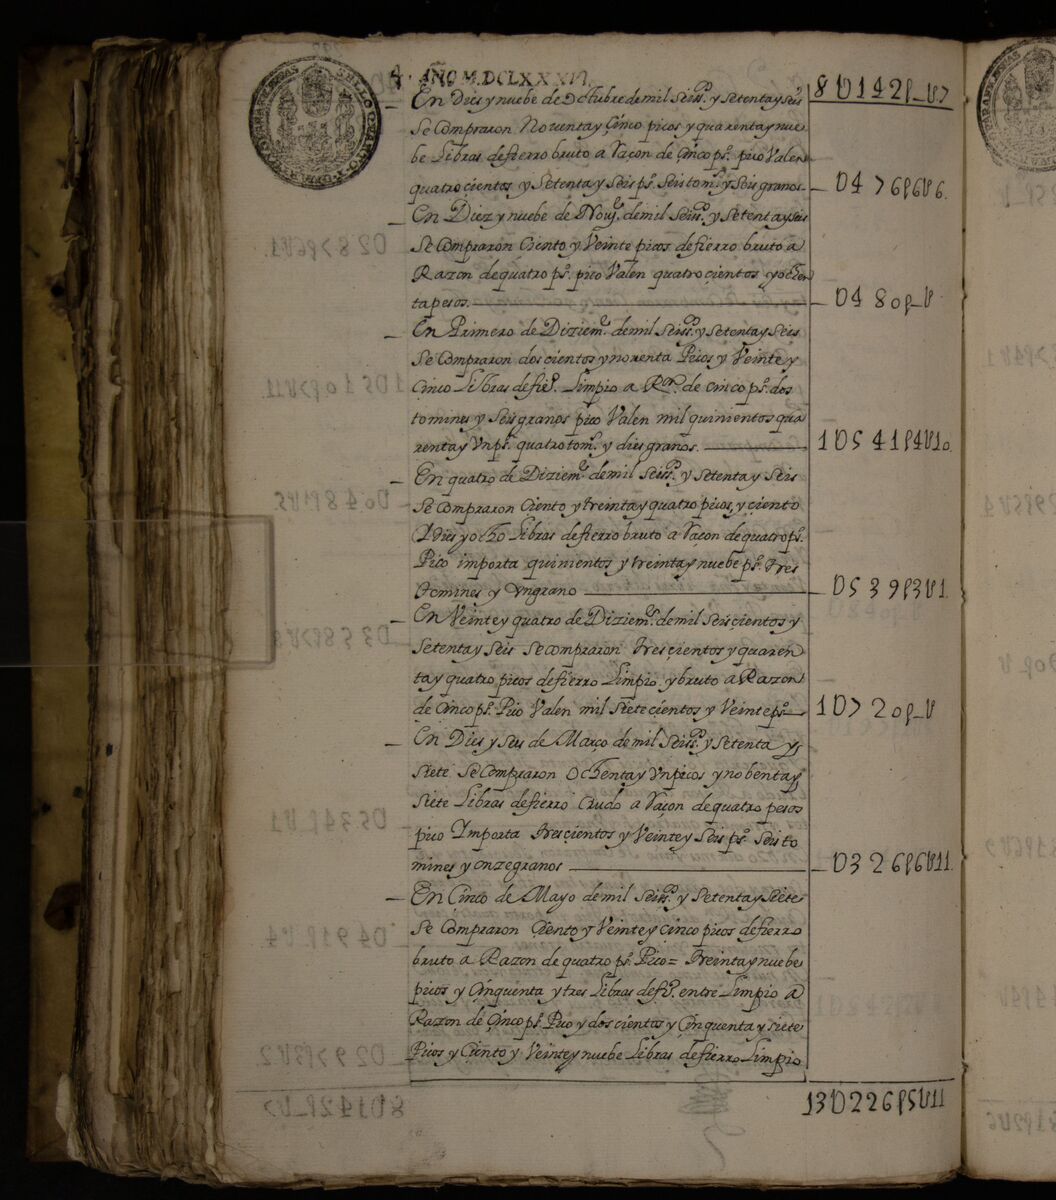 4. AÑO M.DCLXXXVI.
8U142p_U7
En Dies y nuebe de Octubre de mil Seiss.s y Setenta y seis
Se Compraron Noventa y Cinco picos y quarenta y nue
be Libras de fierro bruto a Raçon de Cinco ps. pico Valen
quatrocientos y Setenta y Seis ps. Seis tom.s y Seis granos. U476p6U6.
En Diez y nuebe de Nou.e de mil Seiss.s y Setenta y seis
Se Compraron Ciento y Veinte picos de fierro bruto a
Razon de quatro ps. pico Valen quatrocientos y ochen
ta pesos. U480p_U
En Primero de Diziem.e de mil Seiss.s y Setenta y Seis
Se Compraron doscientos y noventa Picos y Veinte y
Cinco Libras de fie.o Limpio a Ron. de cinco ps. dos
tomines y Seis granos pico Valen mil quinientos qua
renta y Un ps. quatro tom.s y dies granos. 1U541p4U10.
En quatro de Diziem.e de mil Seiss.s y Setenta y Seis
Se Compraron Ciento y treinta y quatro picos, y ciento
Y dies y ocho Libras de fierro bruto a Raçon de quatro ps.
Pico importa quinientos y treinta y nuebe ps. tres
tomines y Un grano U539p3U1.
En Veinte y quatro de Diziem.e de mil Seiscientos y
Setenta y Seis Se compraron trescientos y quaren
ta y quatro picos de fierro Limpio y bruto a Razon
de Cinco ps. Pico Valen mil Sietecientos y Veinte ps. 1U720p_U
En Dies y Seis de Março de mil Seiss.s y Setenta y
Siete Se Compraron Ochenta y Un picos y nobenta y
Siete Libras de fierro Crudo a Raçon de quatro pesos
pico Ymporta trescientos y Veinte y Seis ps. Seis to
mines y onze granos U326p6U11.
En Cinco de Mayo de mil Seiss.s y Setenta y Siete
Se Compraron Ciento y Veinte y cinco picos de fierro
bruto a Razon de quatro ps. Pico = Treinta y nuebe
picos y Cinquenta y tres Libras de fi.o entre Limpio a
Razon de Cinco ps. Pico y doscientos y Cinquenta y siete
Picos y Ciento y Veinte y nuebe Libras de fierro Limpio
13U226p5U11